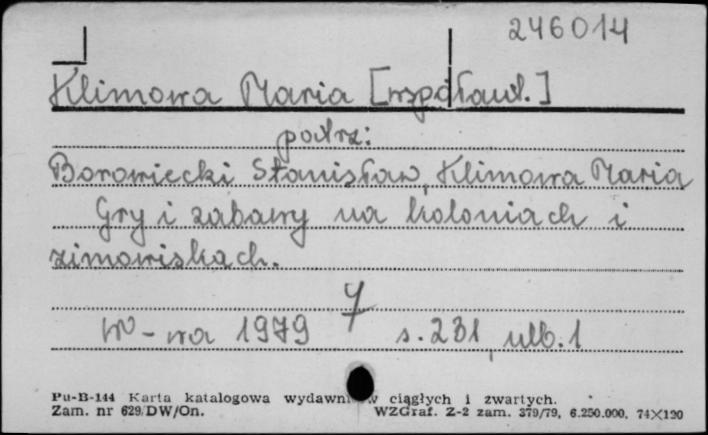 246014
Klimowa Maria [współaut.]
patrz:
Borowiecki Stanisław, Klimowa Maria
Gry i zabawy na koloniach i
zimowiskach.
W-wa 1979 s. 231, nlb. 1
Pu-B-144 Karta katalogowa wydawni w ciągłych i zwartych.
Zam. nr 629/DW/On. WZGraf. Z-2 zam. 379/79, 6.250.000, 74×120